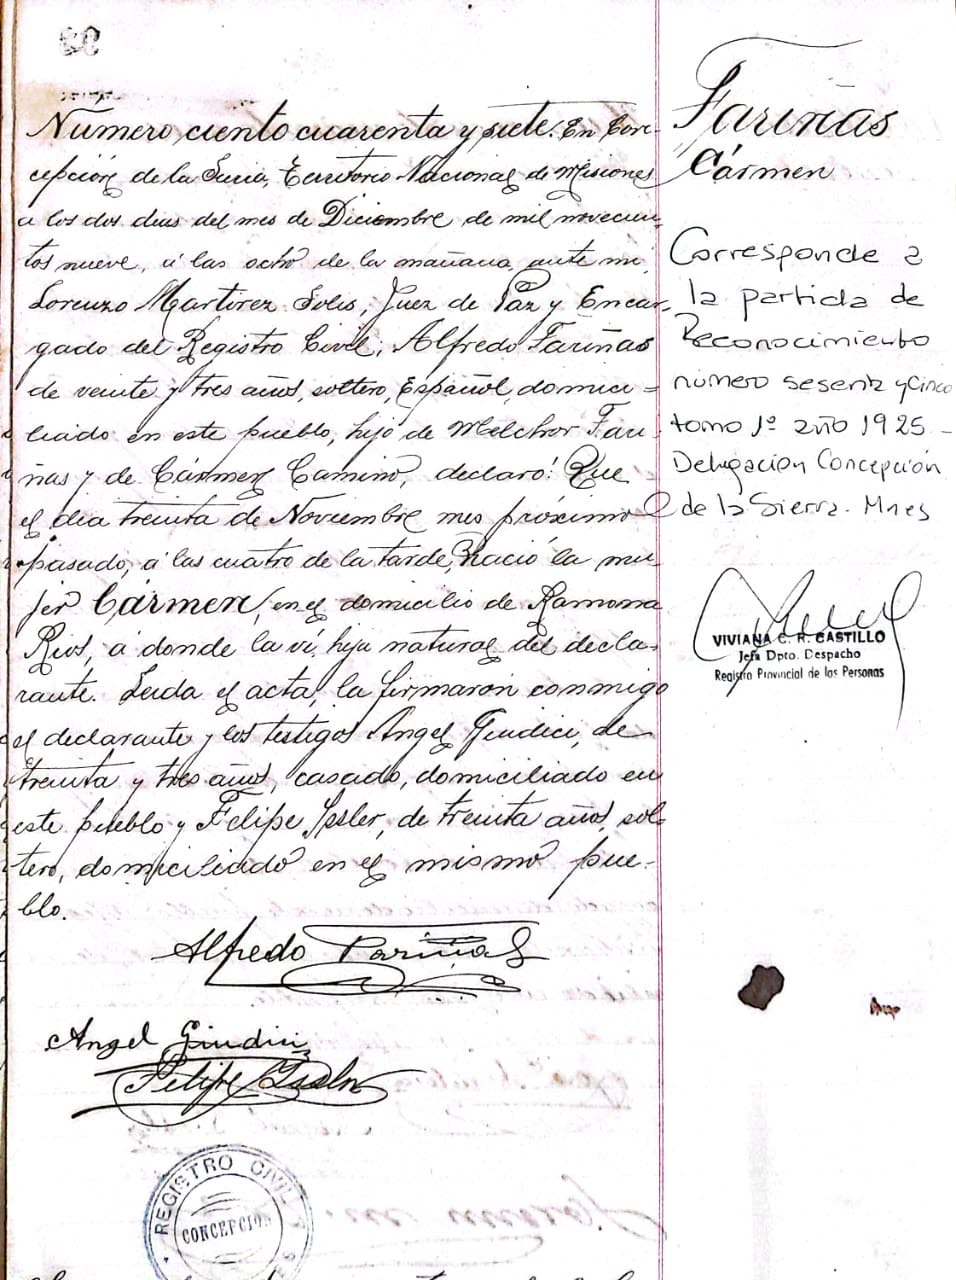 Número ciento cuarenta y siete. En Con-
cepción de la Sierra, Territorio Nacional de Misiones
a los dos dias del mes de Diciembre de mil novecien-
tos nueve, á las ocho de la mañana, ante mi,
Lorenzo Martirez Solis, Juez de Paz y Encar-
gado del Registro Civil, Alfredo Fariñas
de veinte y tres años, soltero, Español, domici=
liado en este pueblo, hijo de Melchor Fari-
ñas y de Cármen Camino, declaró: Que
el dia treinta de Noviembre mes próximo
pasado, á las cuatro de la tarde, nació la mu-
jer Cármen, en el domicilio de Ramona
Rios, á donde la ví, hija natural del decla-
rante. Leida el acta, la firmaron conmigo
el declarante y los testigos Angel Giudici, de
treinta y tres años, casado, domiciliado en
este pueblo y Felipe Issler, de treinta años, sol-
tero, domiciliado en el mismo pue-
blo.
Alfredo Fariñas
Angel Giudici
Felipe Issler
REGISTRO CIVIL
CONCEPCION
Fariñas
Cármen
Corresponde a
la partida de
Reconocimiento
número sesenta y cinco
tomo 1º año 1925 -
Delegacion Concepción
de la Sierra. Mnes
VIVIANA C. R. CASTILLO
Jefa Dpto. Despacho
Registro Provincial de las Personas